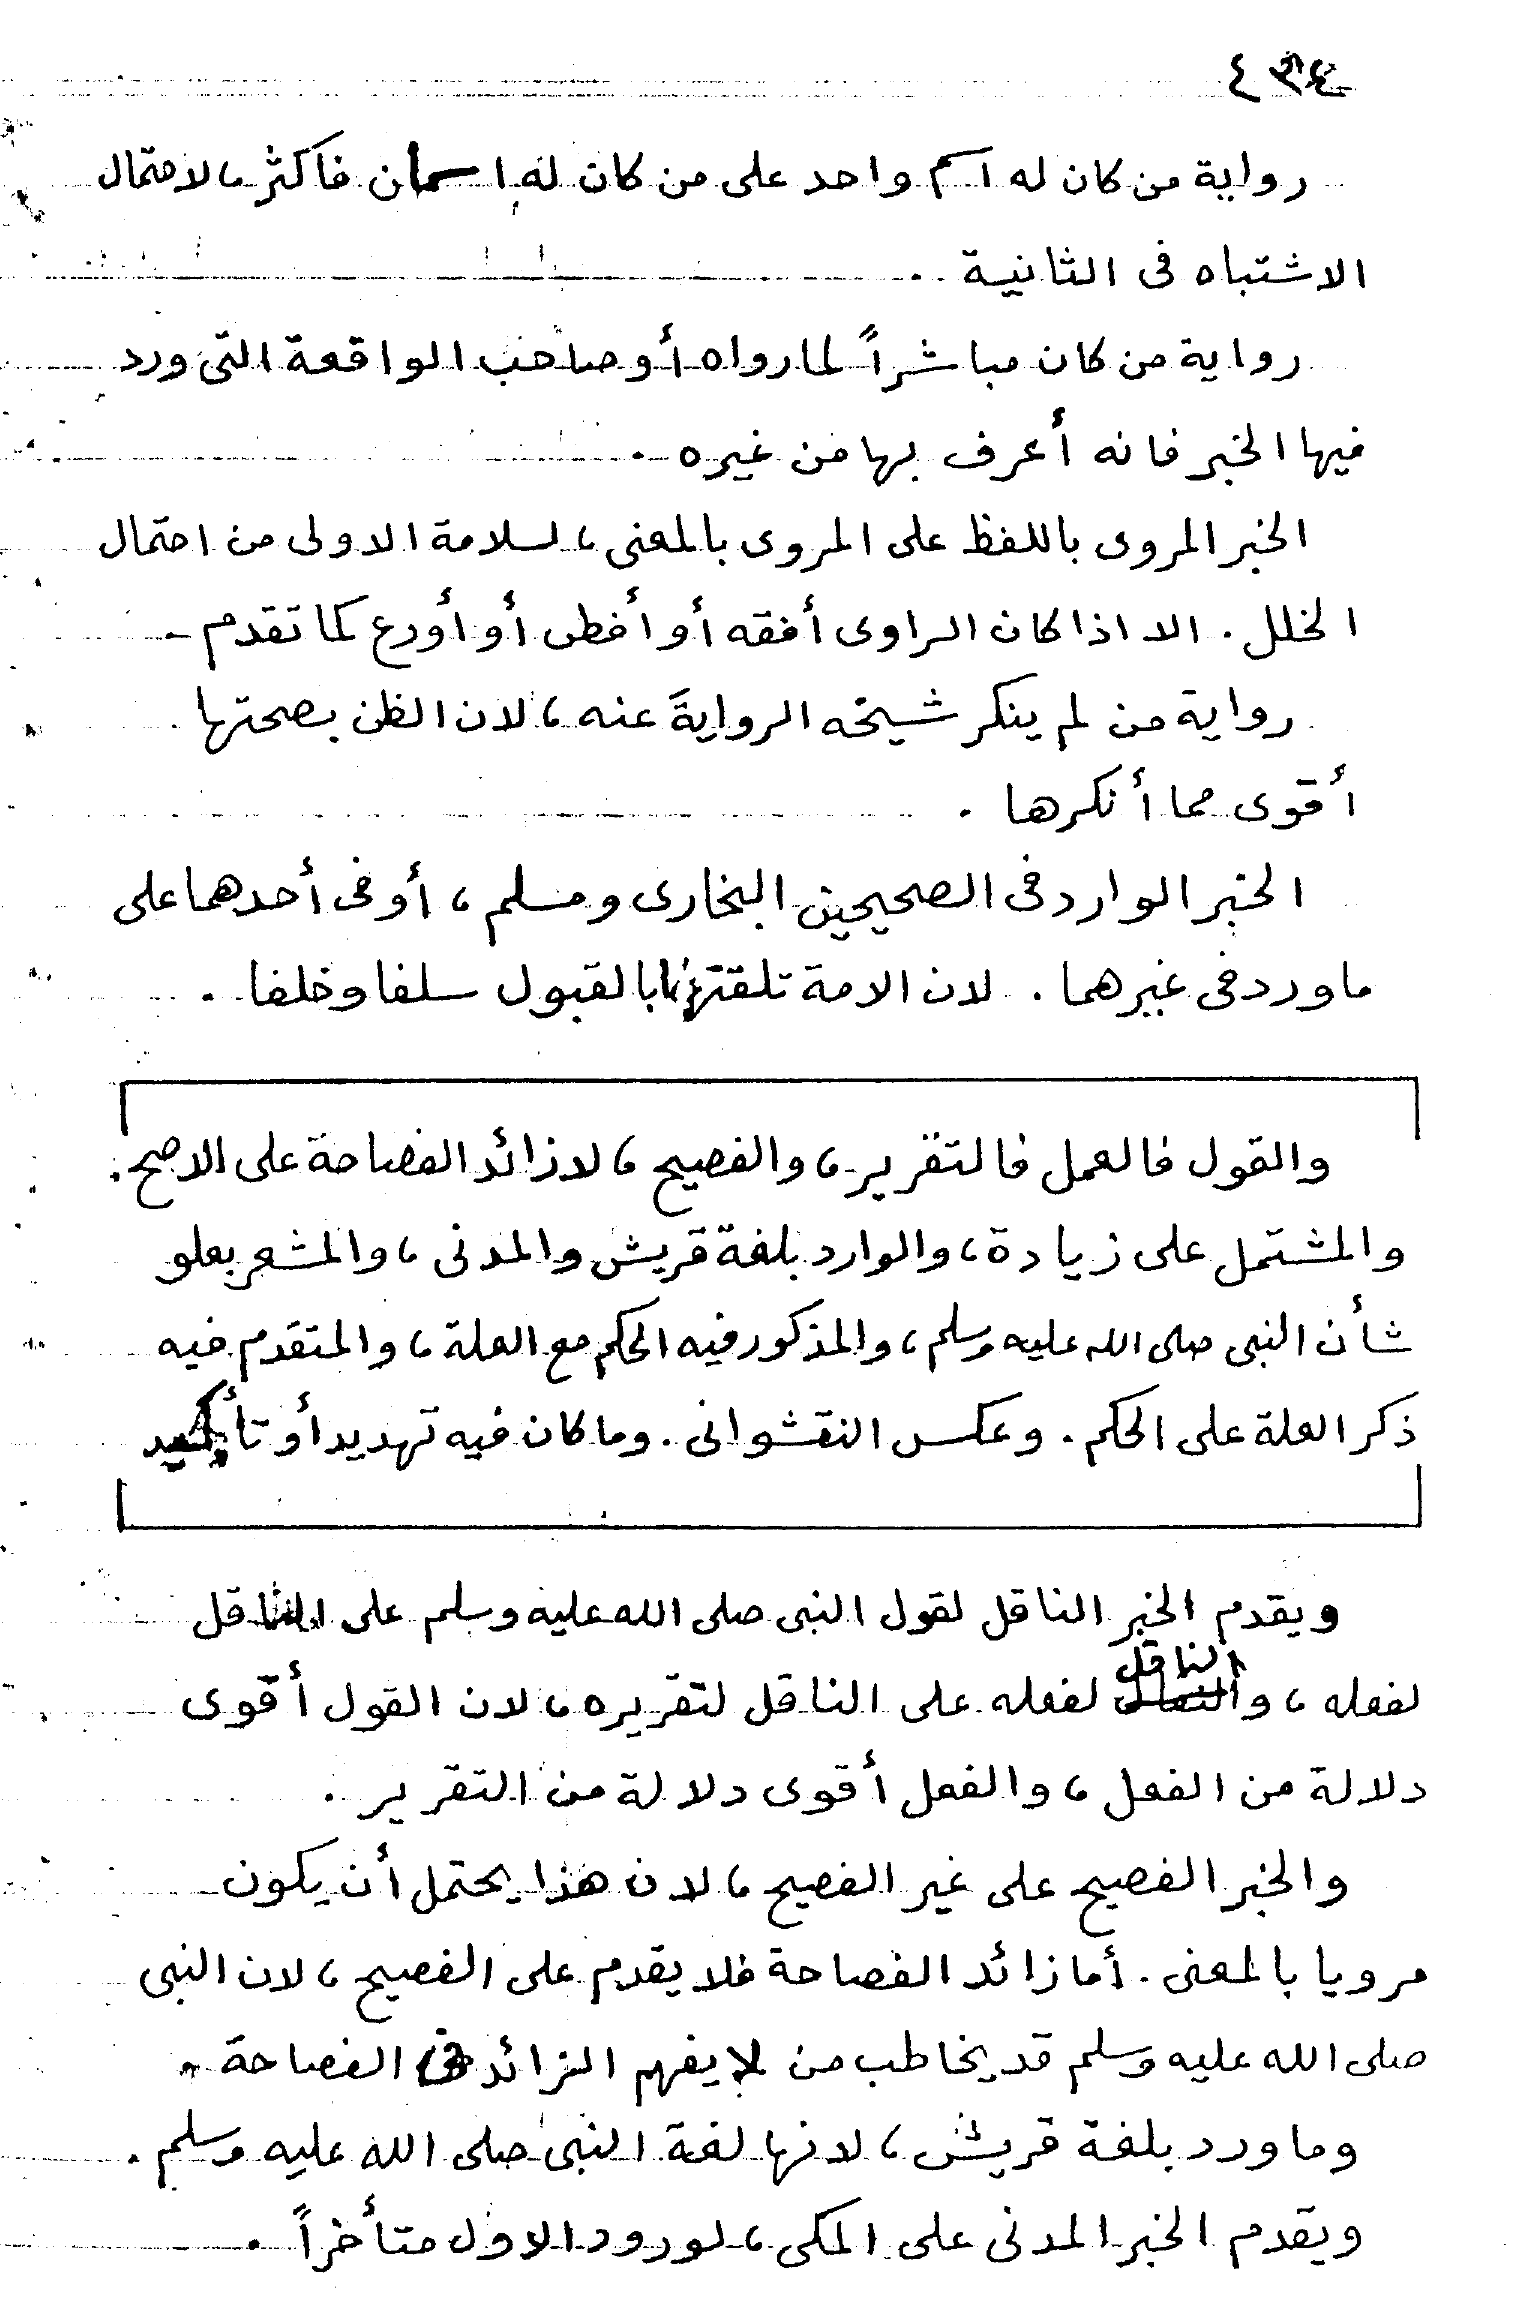 رواية من كان له اسم واحد على من كان له اسمان فاكثر، لاحتمال
الاشتباه فى الثانية .
رواية من كان مباشراً لما رواه أو صاحب الواقعة التى ورد
فيها الخبر فانه أعرف بها من غيره .
الخبر المروى باللفظ على المروى بالمعنى، لسلامة الاولى من احتمال
الخلل . الا اذا كان الراوى أفقه أو أفطن أو أورع كما تقدم .
رواية من لم ينكر شيخه الروايةَ عنه، لان الظن بصحتها
أقوى مما أنكرها .
الخبر الوارد فى الصحيحين البخارى ومسلم، أو فى أحدهما على
ما ورد فى غيرهما . لان الامة تلقتهما بالقبول سلفا وخلفا .
والقول فالعمل فالتقرير، والفصيح، لا زائد الفصاحة على الاصح .
والمشتمل على زيادة، والوارد بلغة قريش والمدنى، والمشعر بعلو
شأن النبى صلى الله عليه وسلم، والمذكور فيه الحكم مع العلة، والمتقدم فيه
ذكر العلة على الحكم . وعكس النقشوانى . وما كان فيه تهديد أو تأكيد
ويقدم الخبر الناقل لقول النبى صلى الله عليه وسلم على الناقل
لفعله، والناقل لفعله على الناقل لتقريره، لان القول أقوى
دلالة من الفعل، والفعل أقوى دلالة من التقرير .
والخبر الفصيح على غير الفصيح، لان هذا يحتمل أن يكون
مرويا بالمعنى . أما زائد الفصاحة فلا يقدم على الفصيح، لان النبى
صلى الله عليه وسلم قد يخاطب من لا يفهم الزائد فى الفصاحة .
وما ورد بلغة قريش، لانها لغة النبى صلى الله عليه وسلم .
ويقدم الخبر المدنى على المكى، لورود الاول متأخراً .